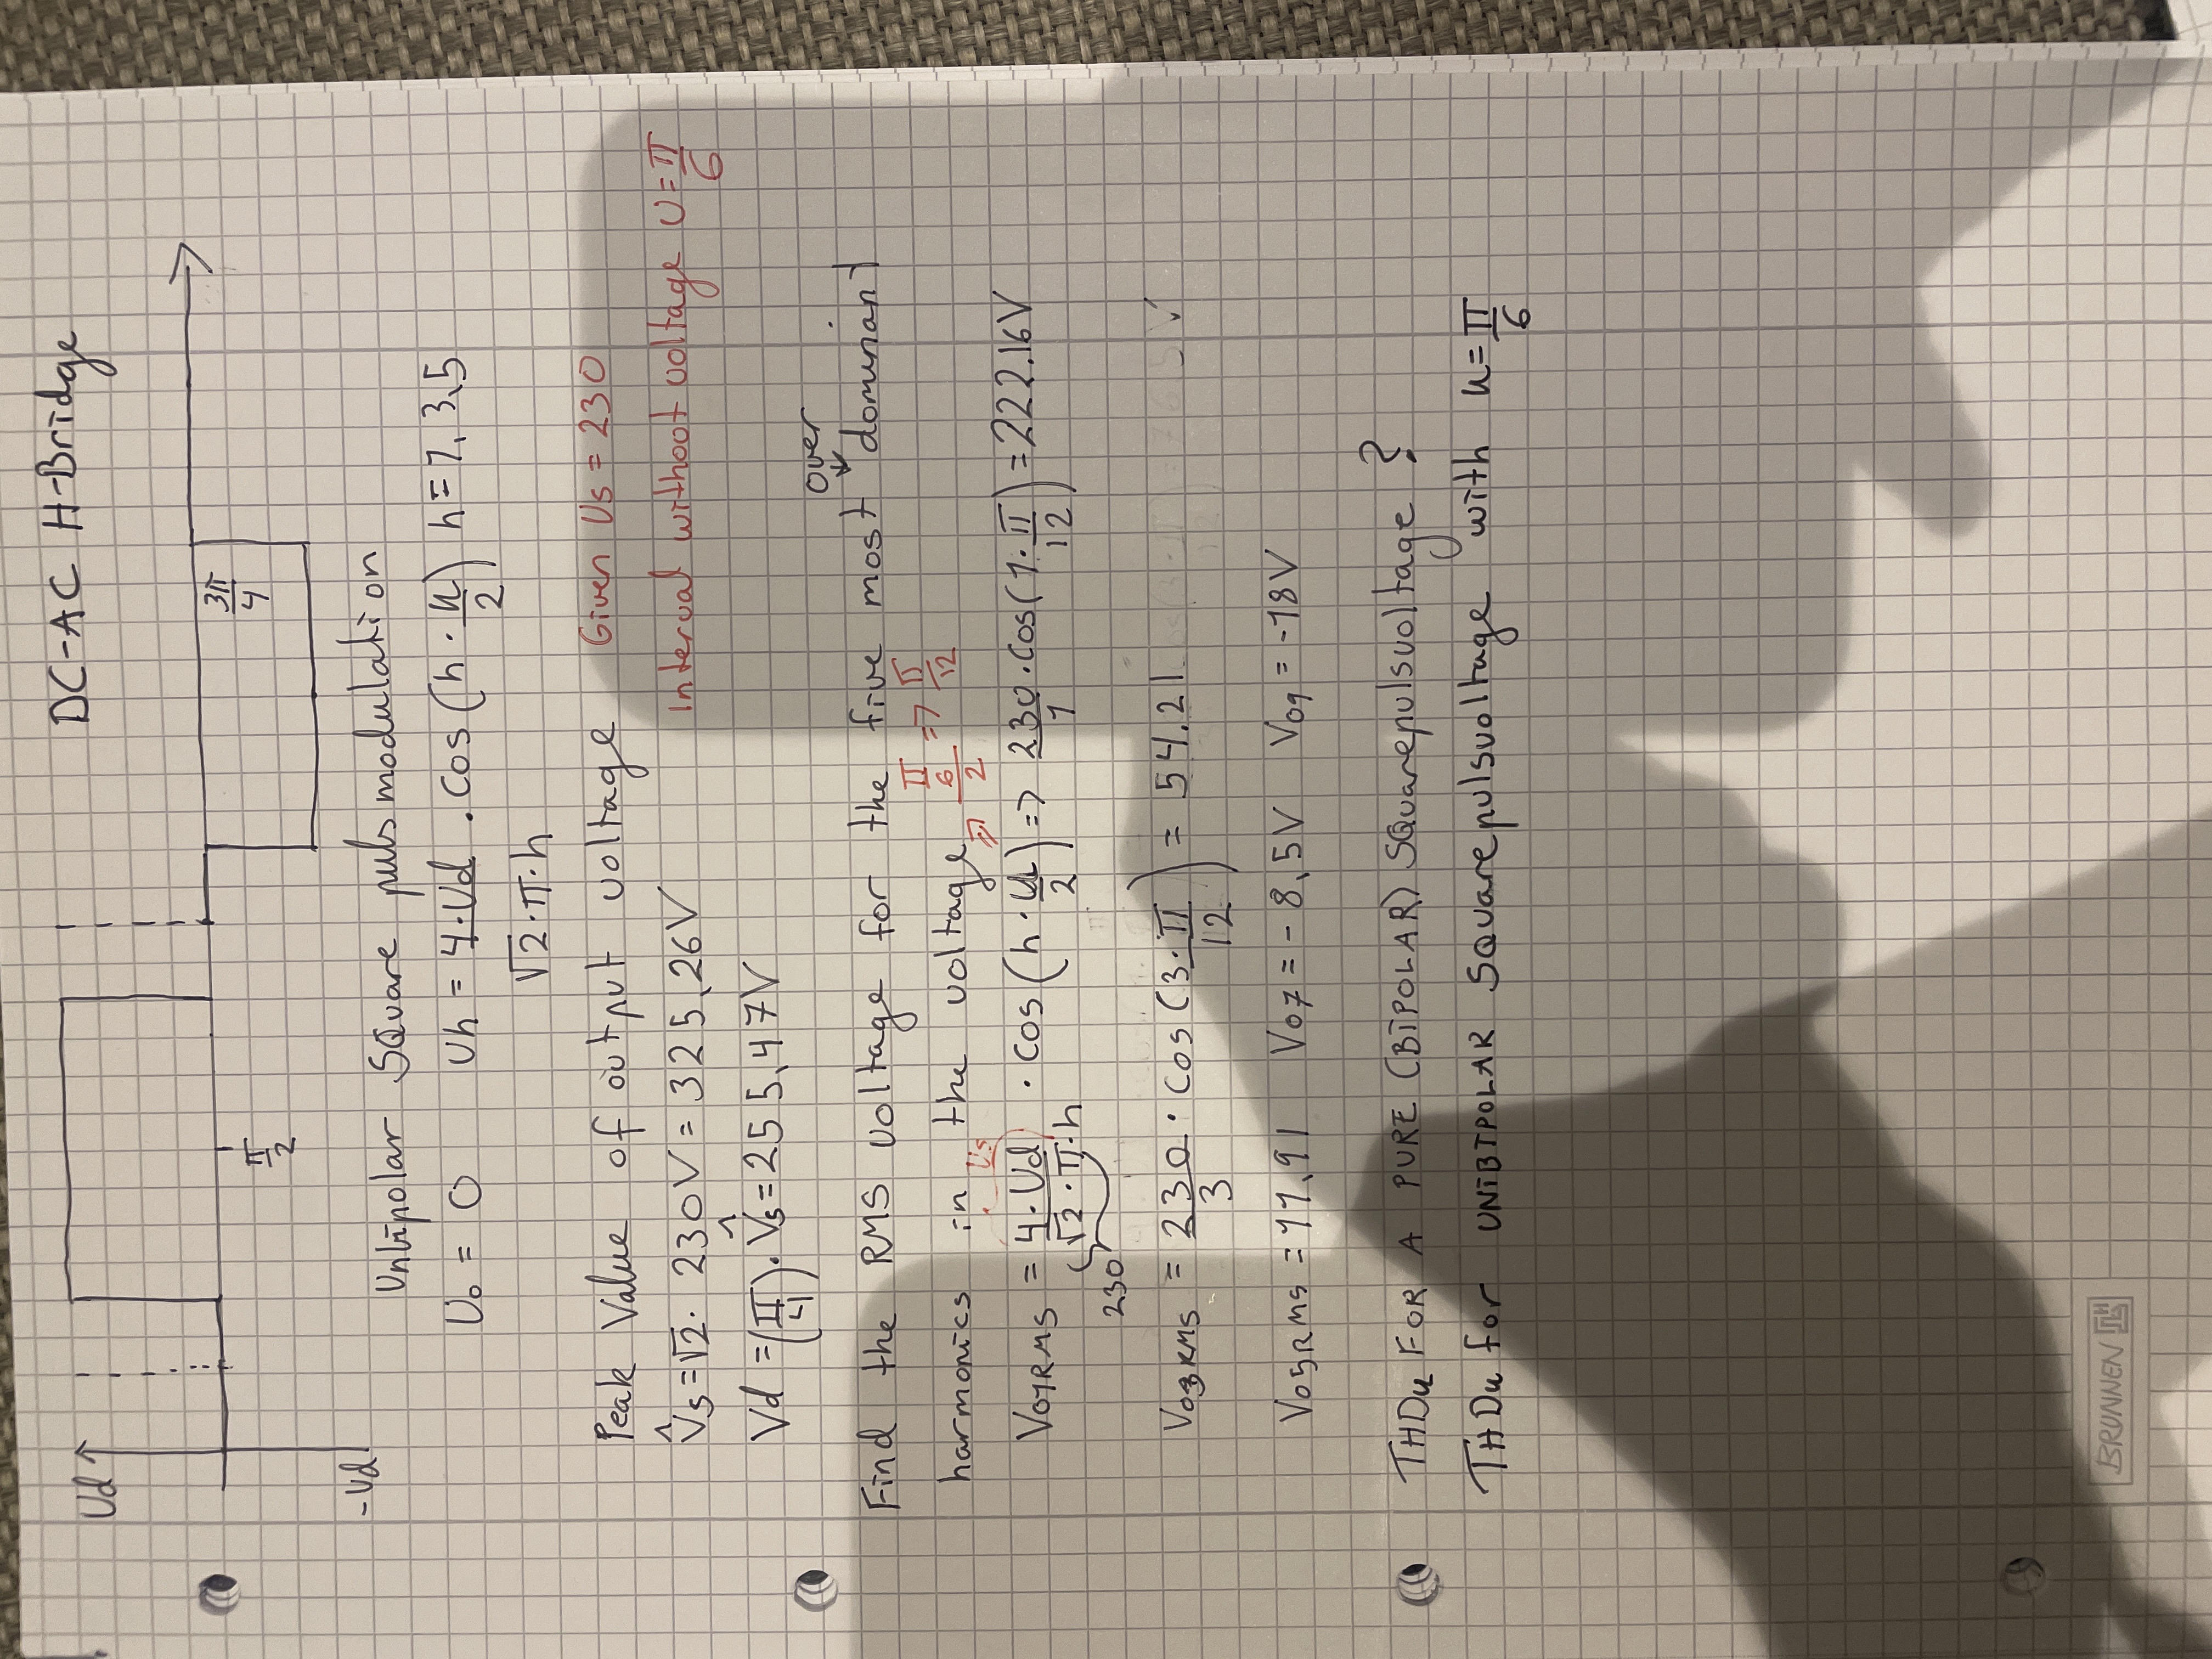 DC-AC H-Bridge
Ud
-Ud
π/2
3π/4
Unbipolar Square pulsmodulation
U₀ = 0 Uh = 4·Ud/√2·π·h · Cos(h·u/2) h=1,3,5
Peak Value of output voltage
V̂s = √2 · 230V = 325,26V
Given Us = 230
Vd = (π/4)·V̂s = 255,47V
Interval without voltage U = π/6
over
Find the RMS voltage for the five most dominant
harmonics in the voltage
⇒ π/6/2 = 7 π/12
Us
Vo1RMS = 4·Ud/√2·π·h · Cos(h·u/2) => 230/1 · Cos(1·π/12) = 222.16V
230
Vo3RMS = 230/3 · Cos(3·π/12) = 54.21
Vo5RMS = 11,91 Vo7 = -8,5V Vo9 = -18V
THDu FOR A PURE (BiPOLAR) SQuarepulsvoltage ?
THDu for UNiBIPOLAR SQuarepulsvoltage with u = π/6
BRUNNEN